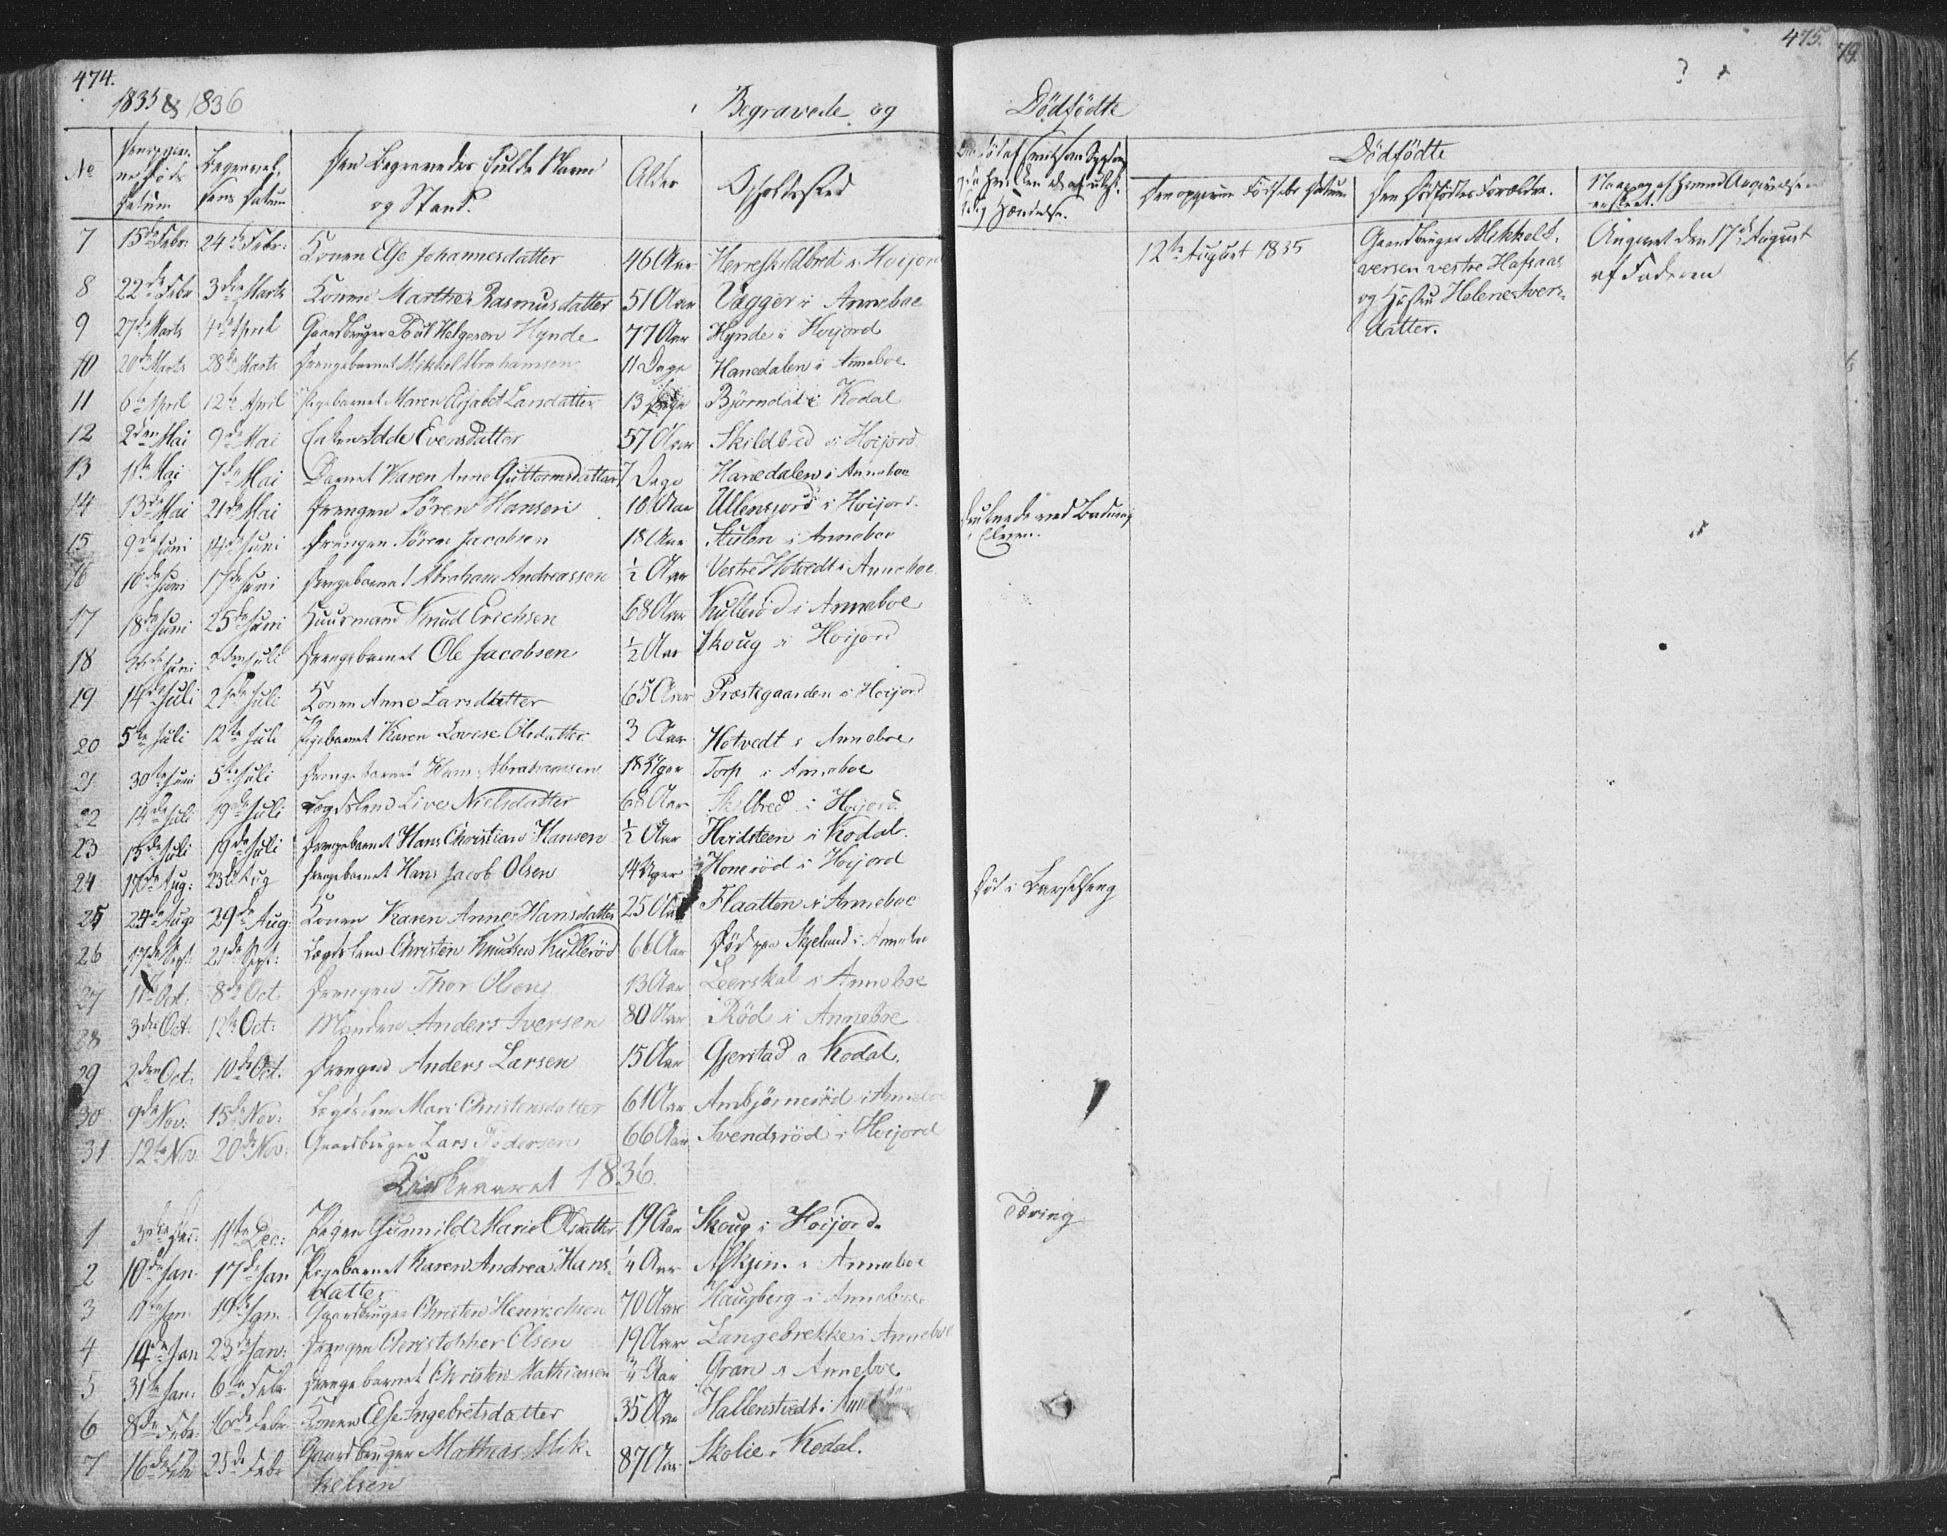 474.
1835 & 1836
Begravede og
No
Begravel-
sens Datum
Den Begravedes fulde Navn
og Stand.
Alder
Opholdssted
7 15de Febr: 24de Febr: Konen Else Johannesdatter 46 Aar Herreskildbred i Hoijord
8 22de Febr 3die Marts Konen Marthe Rasmusdatter 51 Aar Vegger i Anneboe
9 27de Marts 4de April Gaardbruger Poul Helgesen Hynde 77 Aar Hynde i Hoijord
10 20de Marts 28de Marts Drengebarnet Mikkel Abrahamsen 11 Dage Hanedalen i Anneboe
11 6te April 12te April Pigebarnet Maren Elisabet Larsdatter 13 Dage Bjørndal i Kodal
12 2den Mai 9de Mai Enken Adde Evensdatter 57 Aar Skildbred i Hoijord
13 1ste Mai 7de Mai Barnet Karen Anne Guttormsdatter 7 Dage Hanedalen i Anneboe
14 13de Mai 21de Mai Drengen Søren Hansen 10 Aar Ullensjord i Hoijord.
15 9de Juni 14de Juni Drengen Søren Jacobsen 18 Aar Stulen i Anneboe
16 10de Juni 17de Juni Drengebarnet Abraham Andreassen ½ Aar Vestre Hotvedt i Anneboe
17 18de Juni 25de Juni Huusmand Knud Erichsen 68 Aar Kullerød i Anneboe
18 Juni Juli Drengebarnet Ole Jacobsen ½ Aar Skoug i Hoijord
19 14de Juli 21de Juli Konen Anne Larsdatter 65 Aar Præstegaarden i Hoijord
20 5te Juli 12te Juli Pigebarnet Karen Lovise Olsdatter 3 Aar Hotvedt i Anneboe
21 30te Juni 5te Juli Drengebarnet Hans Abrahamsen 18 Uger Torp i Anneboe
22 14de Juli 19de Juli Lægdslem Live Nielsdatter 68 Aar Skilbred i Hoijord
23 15de Juli 19de Juli Drengebarnet Hans Christian Hansen ½ Aar Hvidsteen i Kodal.
24 17de Aug: 23d Aug Drengebarnet Hans Jacob Olsen 14 Uger Honerød i Hoijord
25 24de Aug: 29de Aug: Konen Karen Anne Hansdatter 25 Aar Flaatten i Anneboe
26 17de Sept: 21de Sept: Lægdslem Christen Knudsen Kullerød 66 Aar Død paa Skjelund i Anneboe
27 1ste Oct: 8de Oct. Drengen Thor Olsen 13 Aar Leerskal i Anneboe
28 3die Oct. 12te Oct: Manden Anders Iversen 80 Aar Rød i Anneboe
29 2den Oct. 10de Oct. Drengen Anders Larsen 15 Aar Gjerstad i Kodal.
30 9de Nov: 15de Nov: Lægdslem Mari Christensdatter 61 Aar Ambjørnerød i Anneboe
31 12te Nov. 20de Nov: Gaardbruger Lars Pedersen 66 Aar Svendsrød i Hoijord
Kirkeaaret 1836.
1 3die Dec: 11te Dec: Pigen Gunnild Marie Olsdatter 19 Aar Skoug i Hoijord.
2 10de Jan. 17de Jan Pigebarnet Karen Andrea Hans-
datter ¼ Aar Askjem i Anneboe
3 11te Jan. 19de Jan. Gaardbruger Christen Henrichsen 70 Aar Haugberg i Anneboe
4 14de Jan 23de Jan: Drengen Christopher Olsen 19 Aar Langebrekke i Anneboe
5 31te Jan: 6te Febr Drengebarnet Christen Mathiassen ¾ Aar Gran i Anneboe
6 8de Febr. 16de Febr Konen Else Ingebretsdatter 35 Aar Hallenstvedt i
7 16de Febr 25de Febr Gaardbruger Mathias Mik-
kelsen 87 Aar Skolie i Kodal.
475.
Dødfødte
Dødfødte
Den Dødfødtes Forældre.
12te August 1835
Gaardbruger Mikkel I-
versen vestre Hafsaas
og Hustru Helene Ivers-
datter.
Angivet den 17de August
af Faderen
Druknede ved Badning
i Elven.
Død i Barselseng
Tæring